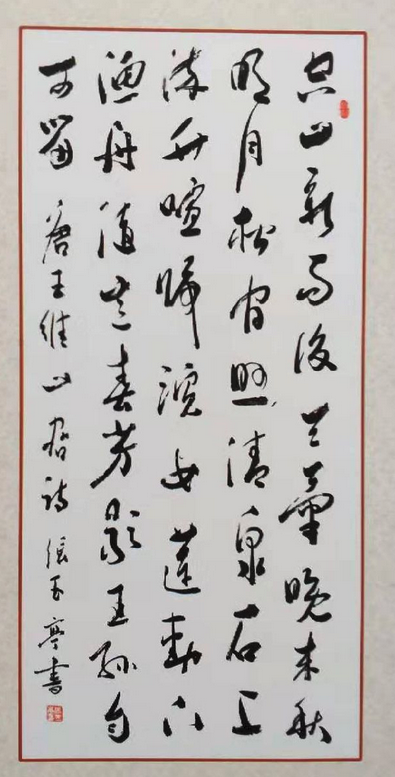 空山新雨後天氣晚来秋
明月松间照清泉石上
流竹喧歸浣女蓮動下
渔舟随意春芳歇王孫自
可留 唐王维山居诗 张玉亭書